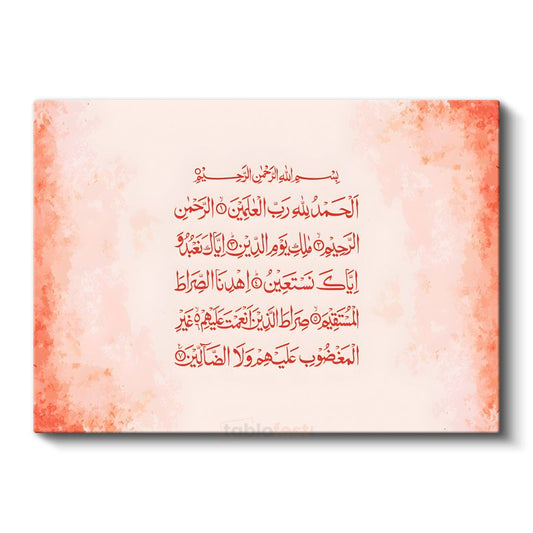 بِسْمِ اللهِ الرَّحْمٰنِ الرَّحِيْمِ
اَلْحَمْدُ لِلهِ رَبِّ الْعٰلَمِيْنَ ١ الرَّحْمٰنِ
الرَّحِيْمِ ٢ مٰلِكِ يَوْمِ الدِّيْنِ ٣ اِيَّاكَ نَعْبُدُ وَ
اِيَّاكَ نَسْتَعِيْنُ ٤ اِهْدِنَا الصِّرَاطَ
الْمُسْتَقِيْمَ ٥ صِرَاطَ الَّذِيْنَ اَنْعَمْتَ عَلَيْهِمْ ٦ غَيْرِ
الْمَغْضُوْبِ عَلَيْهِمْ وَلَا الضَّآلِّيْنَ ٧
tablofest